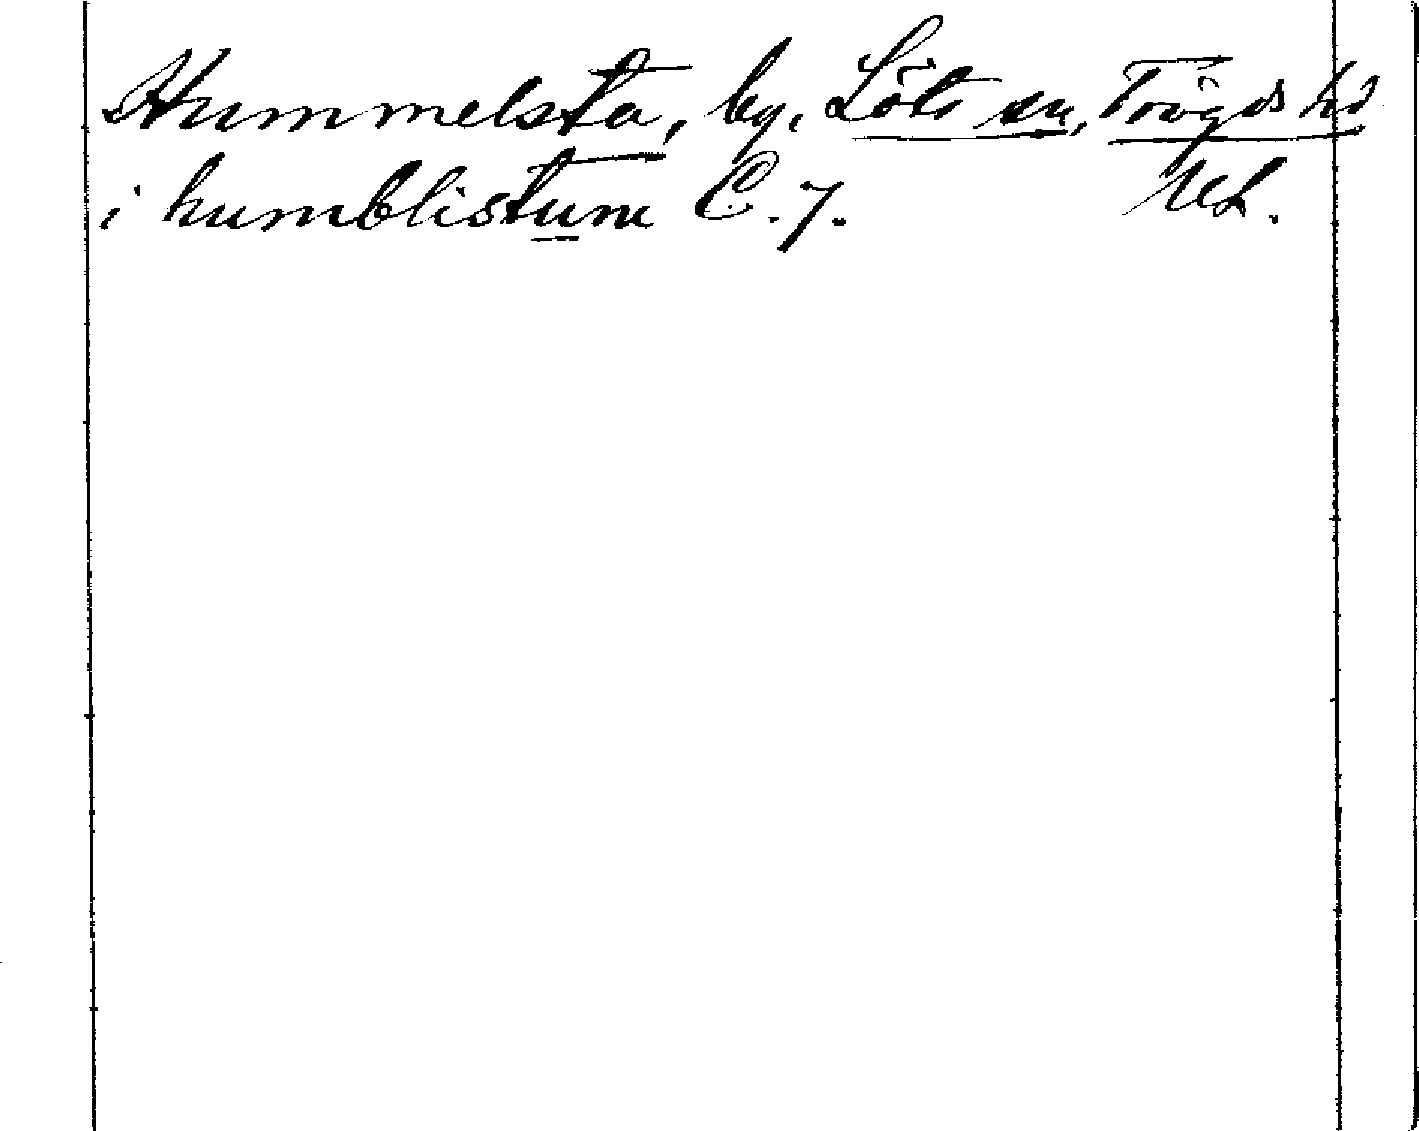 Hummelsta, by, Löts sn, Trögds hd
i humblistum C. 7. UL.